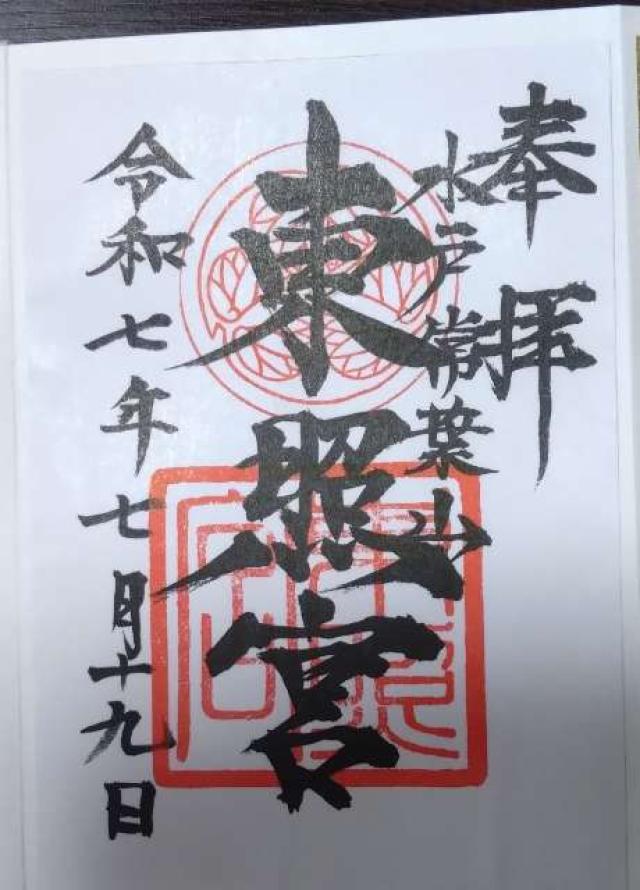 奉拝
水戸常葉山
東照宮
令和七年七月十九日